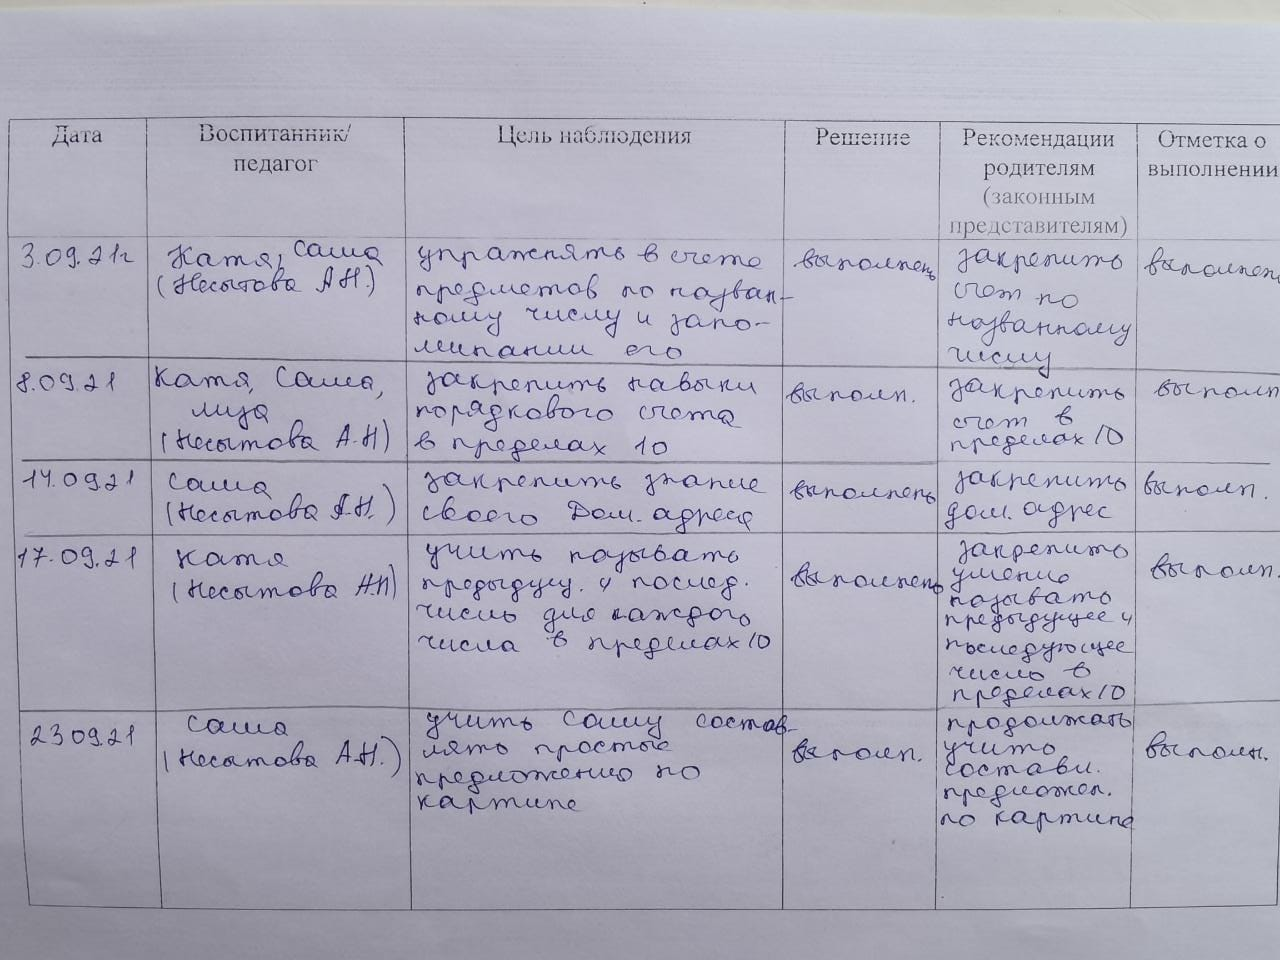 Дата
Воспитанник/
педагог
Цель наблюдения
Решение
Рекомендации
родителям
(законным
представителям)
Отметка о
выполнении
3.09.21г
Катя, Саша
(Несытова А.Н.)
упражнять в счете
предметов по назван-
ному числу и запо-
минании его
выполнень
закрепить
счет по
названному
числу
выполнень
8.09.21
Катя, Саша,
лиза
(Несытова А.Н)
закрепить навыки
порядкового счета
в пределах 10
выполн.
закрепить
счет в
пределах 10
выполн
14.0921
Саша
(Несытова А.Н.)
закрепить знание
своего Дом. адреса
выполнень
закрепить
дом. адрес
выполн.
17.09.21
Катя
(Несытова А.Н)
учить называть
предыдущ. и послед.
число для каждого
числа в пределах 10
выполнень
закрепить
умение
называть
предыдущее и
последующее
число в
пределах 10
выполн.
23 09.21
Саша
(Несытова А.Н.)
учить Сашу состав-
лять простые
предложения по
картине
выполн.
продолжать
учить
составл.
предложен.
по картине
выполн.